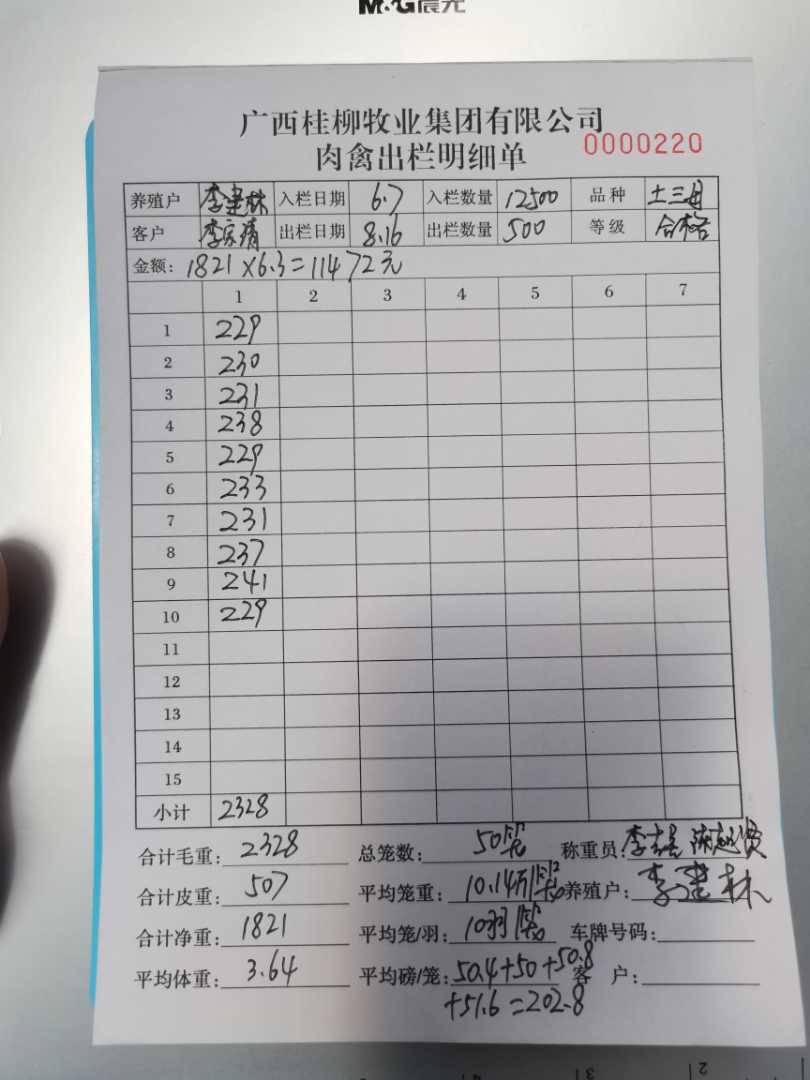 M&G晨光
广西桂柳牧业集团有限公司
肉禽出栏明细单 0000220
养殖户 李建林 入栏日期 6.7 入栏数量 12500 品种 土三月
客户 李家靖 出栏日期 8.16 出栏数量 500 等级 合格
金额: 1821×6.3=11472元
1 2 3 4 5 6 7
1 229
2 230
3 231
4 238
5 229
6 233
7 231
8 237
9 241
10 229
11
12
13
14
15
小计 2328
合计毛重: 2328 总笼数: 50笼 称重员:
合计皮重: 507 平均笼重: 10.14 养殖户: 李建林
合计净重: 1821 平均笼/羽: 10羽/笼 车牌号码:
平均体重: 3.64 平均磅/笼: 50.4+50+50.8 客户:
+51.6=202.8